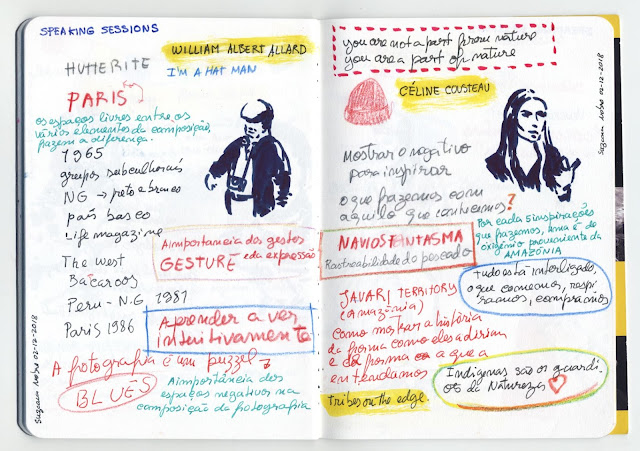 SPEAKING SESSIONS
WILLIAM ALBERT ALLARD
I'M A HAT MAN
HUTTERITE
PARIS
os espaços livres entre os
vários elementos da composição,
fazem a diferença.
1965
grupos subculturais
NG → preto e branco
país basco
Life magazine
The West
Bäcaroos
Peru - N.G 1981
Paris 1986
A importancia dos gestos
GESTURE e da expressão
Aprender a ver
intuitivamente
A fotografia é um puzzel
BLUES
A importância dos
espaços negativos na
composição da fotografia
02-12-2018
you are not a part from nature
you are a part of nature
CÉLINE COUSTEAU
02-12-2018
Mostrar o negativo
para inspirar
o que fazemos com
aquilo que conhecemos?
Por cada 5 inspirações
que fazemos, uma é de
oxigénio proveniente da
AMAZÓNIA
NAVIOS FANTASMA
Rastreabilidade do pescado
tudo está interligado,
o que comemos, respi
ramos, compramos
JAVARI TERRITORY
(Amazónia)
como mostrar a história
da forma como eles a diriam
e da forma a que a
entendamos
Indigenas são os guardi-
ões da Natureza
tribes on the edge.